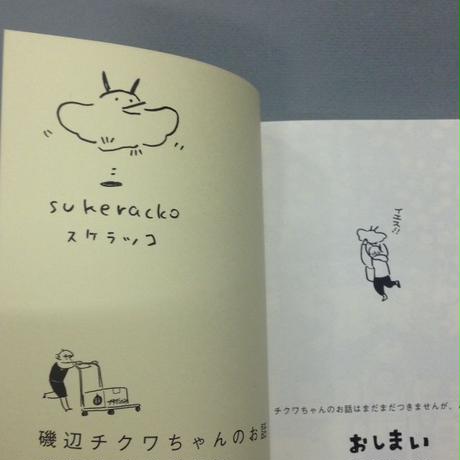 sukeracko
スケラッコ
磯辺チクワちゃんのお話
イエス!!
チクワちゃんのお話はまだまだつきませんが、
おしまい